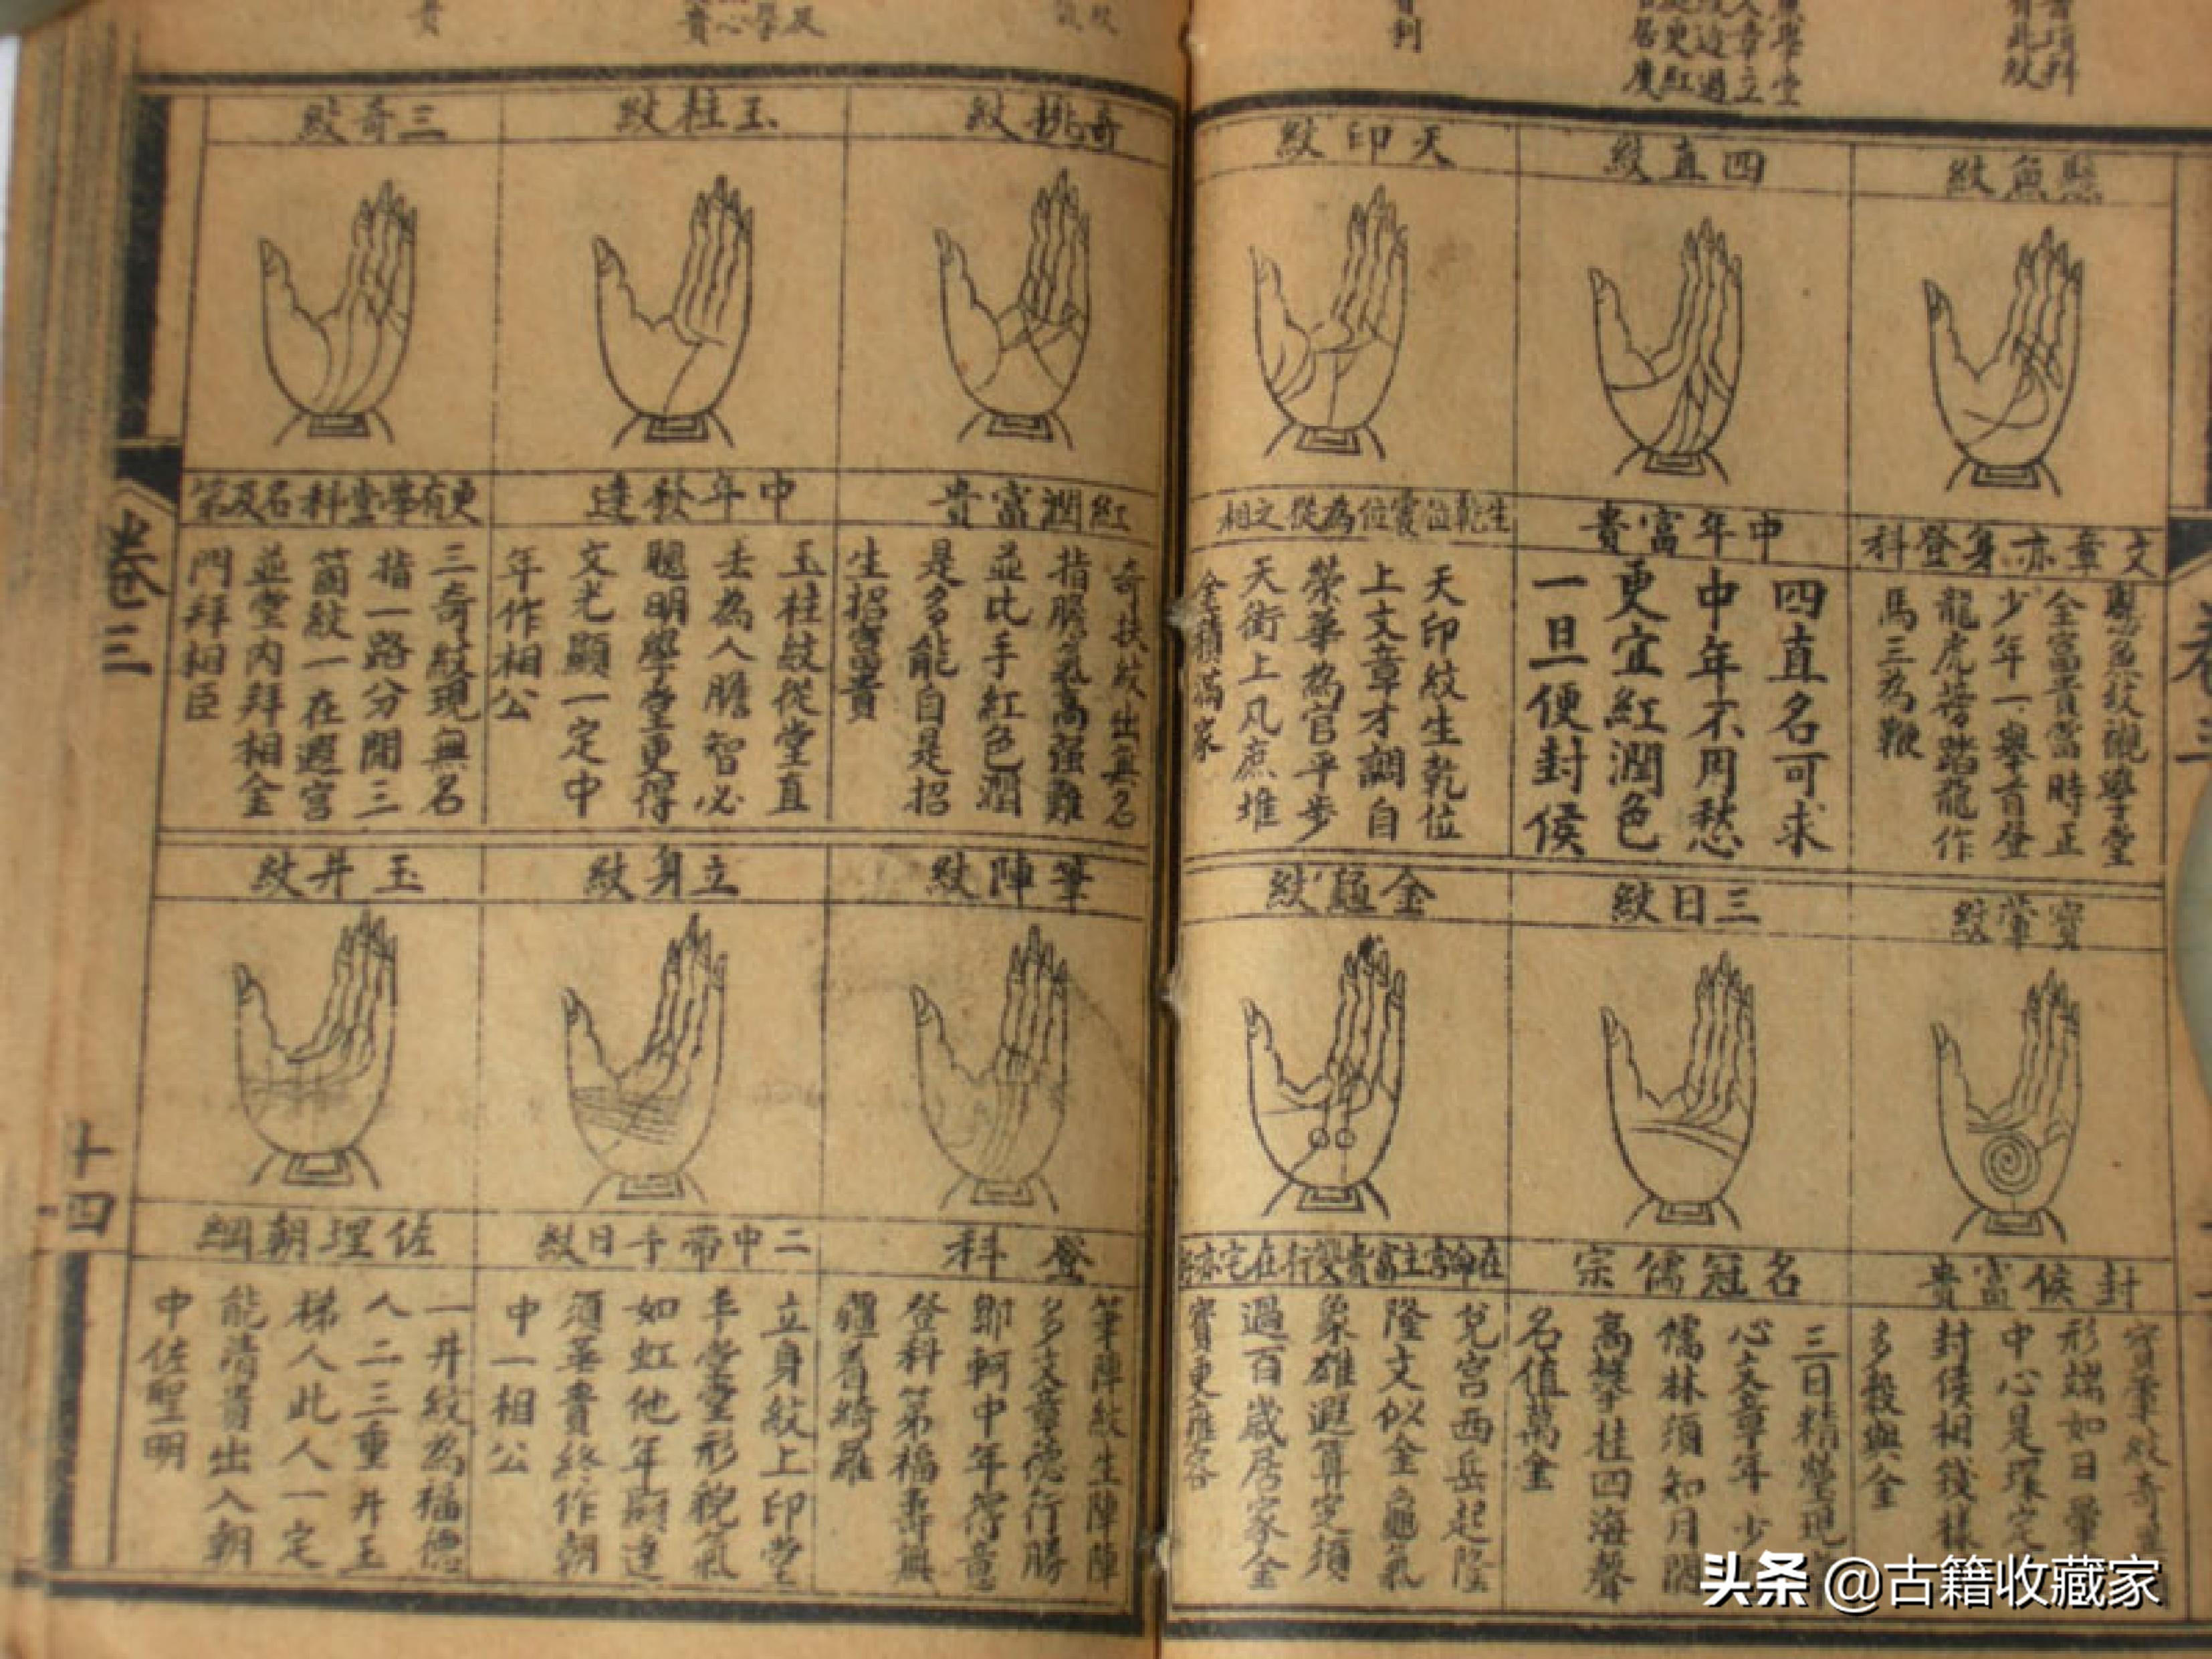 懸魚紋
文章亦身登科
懸魚紋襯學堂
全富貴當時正
少年一舉首登
龍虎菩踏龍作
馬三為鞭
四直紋
中年富貴
四直名可求
中年不用愁
更宜紅潤色
一旦便封侯
天印紋
生乾位震位為從文相
天印紋生乾位
上文章才調自
榮華為官平步
天街上凡庶堆
金積滿家
寶暈紋
封侯富貴
寶暈紋奇
形端如日暈
中心是環定
封侯相錢樣
多穀與金
三日紋
名冠儒宗
三日精瑩現
心文章年少
儒林須知月
高攀桂四海聲
名值萬金
金龜紋
在命宮主富貴雙行在宅亦
兌宮西岳起隆
隆文似金龜氣
象雄遐算定須
過百歲居家金
寶更雍容
奇挑紋
紅潤富貴
奇扶紋出無名
指膽氣高強難
並比手紅色潤
是多能自是招
生招富貴
玉柱紋
中年發達
玉柱紋從堂直
去為人膽智必
聰明學堂更得
文光顯一定中
年作相公
三奇紋
更有學堂科名及第
三奇紋現無名
指一路分開三
箇紋一在遐宮
並堂內拜相金
門拜相臣
筆陣紋
登科
筆陣紋生陣陣
多文章德行勝
鄒軻中年得意
登科第福壽無
疆着綺羅
立身紋
二中帶千日紋
立身紋上印堂
平堂堂形貌氣
如虹他年顯達
須並貴終作朝
中一相公
玉井紋
佐理朝綱
一井紋為福德
人二三重井玉
梯人此人一定
能清貴出入朝
中佐聖明
卷三
十四
头条 @古籍收藏家